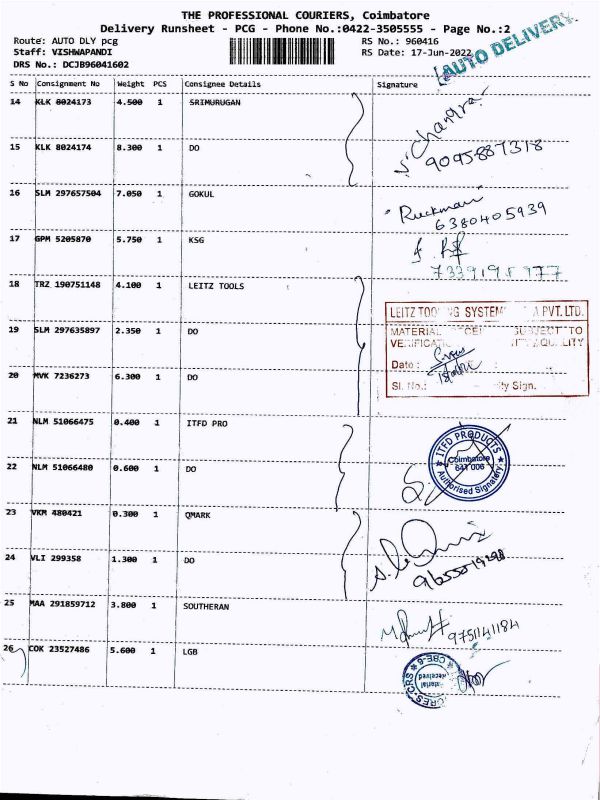 THE PROFESSIONAL COURIERS, Coimbatore
Delivery Runsheet - PCG - Phone No.:0422-3505555 - Page No.:2
Route: AUTO DLY pcg RS No.: 960416
Staff: VISHWAPANDI RS Date: 17-Jun-2022
DRS No.: DCJB96041602
AUTO DELIVERY
S No Consignment No Weight PCS Consignee Details Signature
14 KLK 8024173 4.500 1 SRIMURUGAN
Chandra
15 KLK 8024174 8.300 1 DO
9095887318
16 SLM 297657504 7.050 1 GOKUL
Ruckmani
6380405939
17 GPM 5205870 5.750 1 KSG
7339195977
18 TRZ 190751148 4.100 1 LEITZ TOOLS
LEITZ TOOLING SYSTEM PVT. LTD.
19 SLM 297635897 2.350 1 DO
MATERIAL SUBJECT TO
Date :
20 MVK 7236273 6.300 1 DO
Sl. No.: Sign.
21 NLM 51066475 0.400 1 ITFD PRO
ITFD PRODUCTS
Coimbatore
641 006
Authorised Signatory
22 NLM 51066480 0.600 1 DO
23 VKM 480421 0.300 1 QMARK
24 VLI 299358 1.300 1 DO
25 MAA 291859712 3.800 1 SOUTHERAN
9751141184
26 COK 23527486 5.600 1 LGB